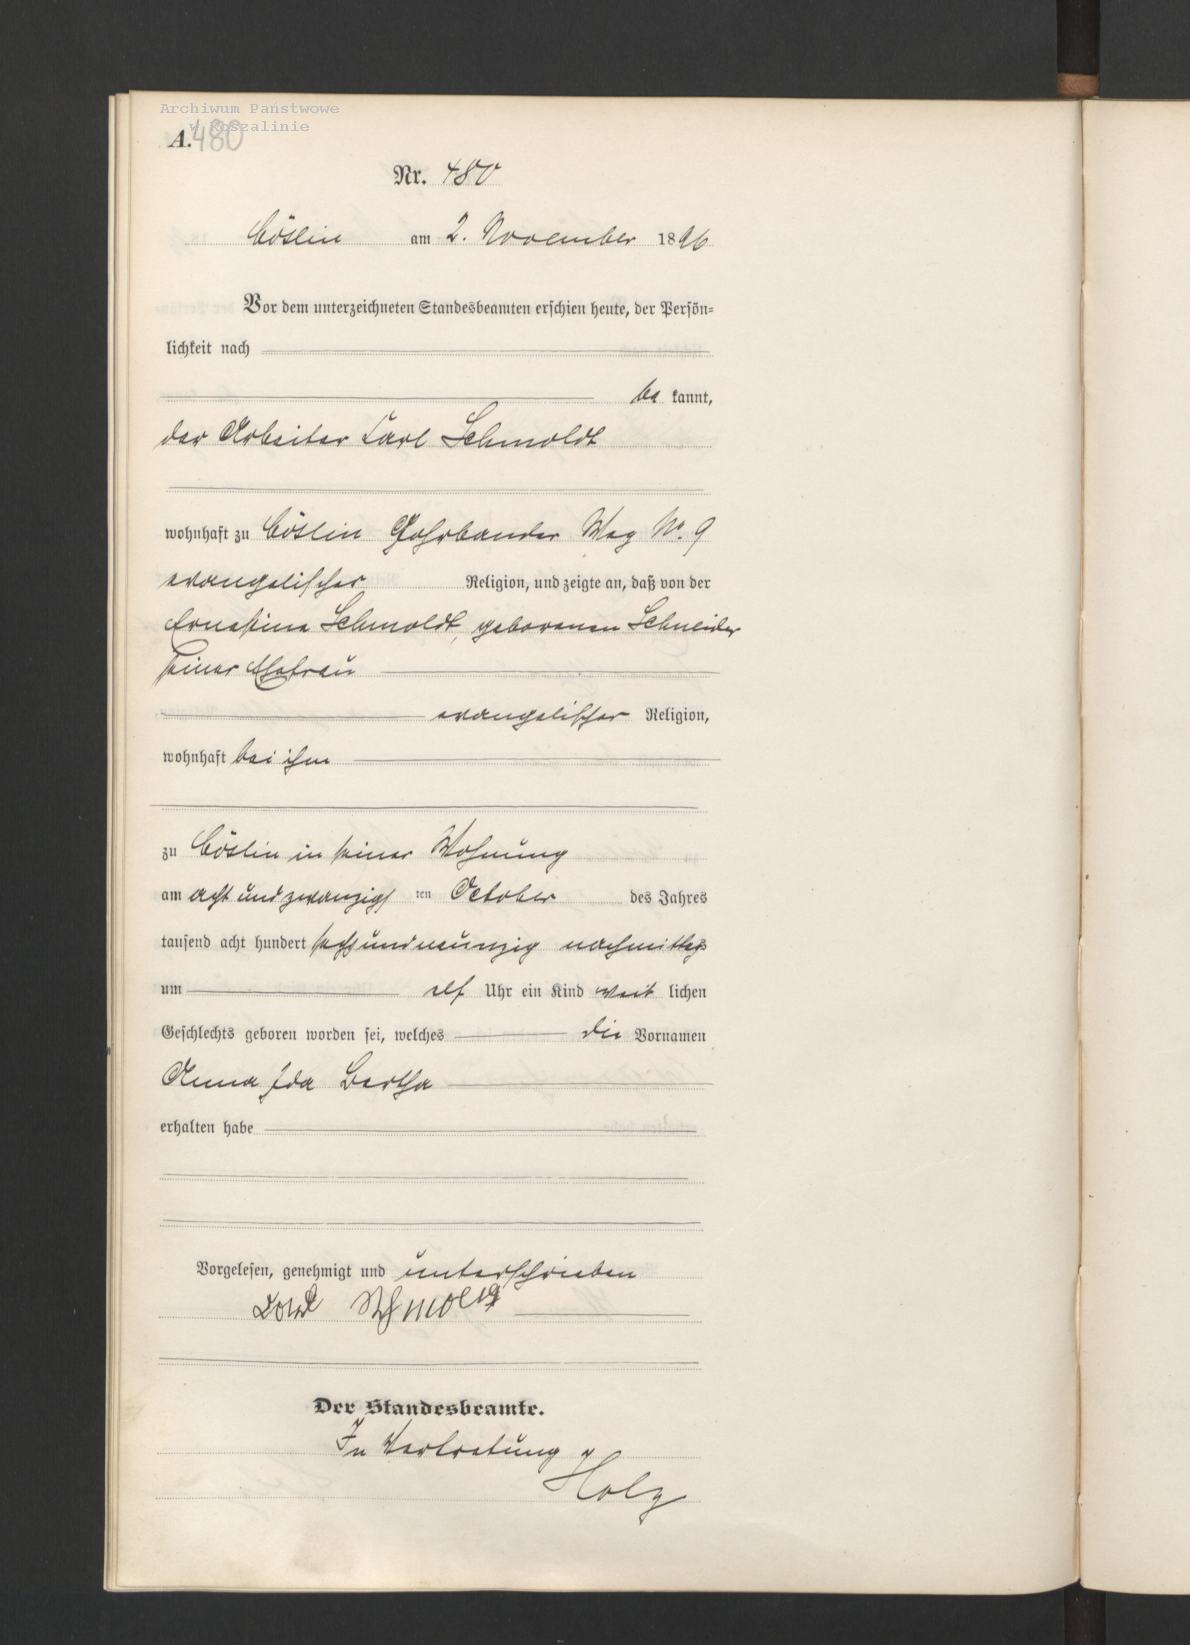 Archiwum Państwowe
w Koszalinie
A. 480
Nr. 480
Cöslin am 2. November 1896
Vor dem unterzeichneten Standesbeamten erschien heute, der Persön-
lichkeit nach
be kannt,
der Arbeiter Carl Schmoldt
wohnhaft zu Cöslin Gohrbander Weg No. 9
evangelischer Religion, und zeigte an, daß von der
Ernestine Schmoldt, geborenen Schneider
seiner Ehefrau
evangelischer Religion,
wohnhaft bei ihm
zu Cöslin in seiner Wohnung
am acht und zwanzigs ten October des Jahres
tausend acht hundert sechs und neunzig nachmittags
um elf Uhr ein Kind weib lichen
Geschlechts geboren worden sei, welches die Vornamen
Anna Ida Bertha
erhalten habe
Vorgelesen, genehmigt und unterschrieben
Schmoldt
Der Standesbeamte.
In Vertretung
Holz